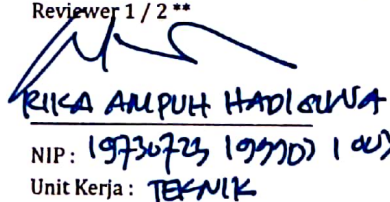 Reviewer 1 / 2 **
RIKA AMPUH HADIGUNA
NIP : 19730723 199903 1 003
Unit Kerja : TEKNIK